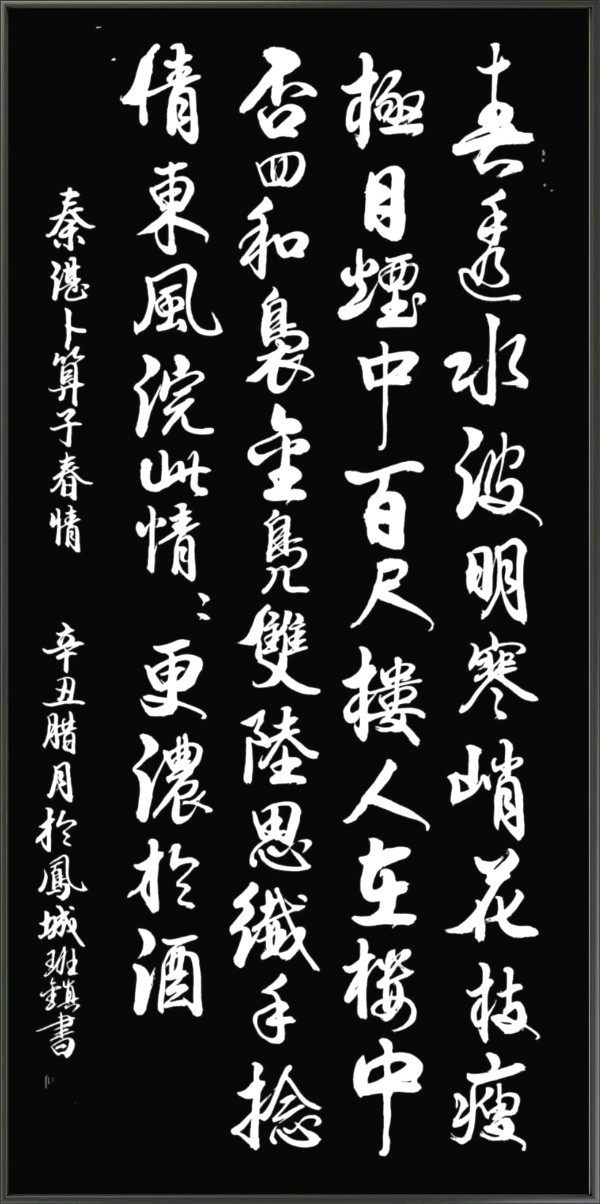 春透水波明寒峭花枝瘦
極目煙中百尺樓人在樓中
否四和裊金鳧雙陸思纖手捻
倩東風浣此情〻更濃於酒
秦湛卜算子春情 辛丑腊月於鳳城班鎮書